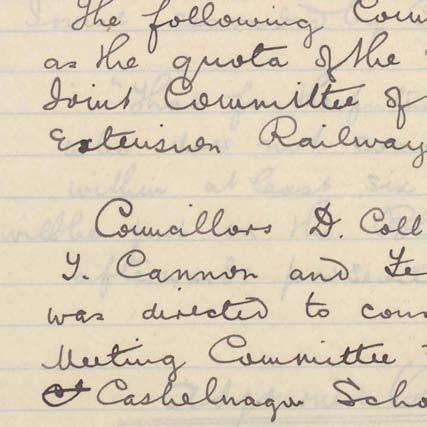 The following Coun
as the quota of the
Joint Committee of
Extension Railway
Councillors D. Coll
T. Cannon and Fe
was directed to con
Meeting Committee
Cashelnagor Scho